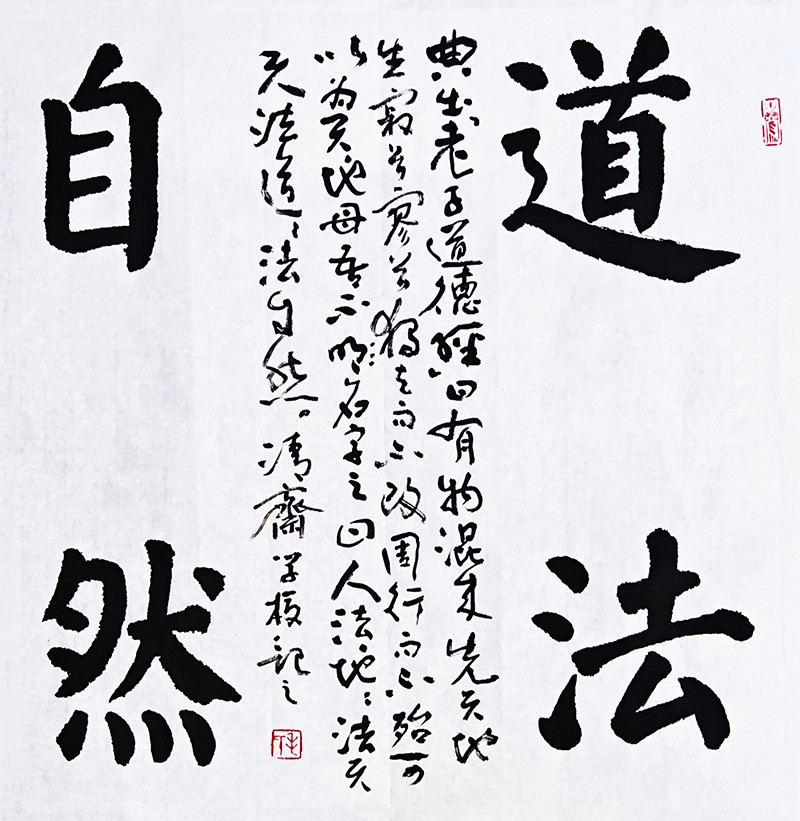 道法
典出老子道德經曰有物混成先天地
生寂兮寥兮独立而不改周行而不殆可
以为天地母吾不明名字之曰人法地〻法天
天法道〻法自然。清齋学板記之
自然